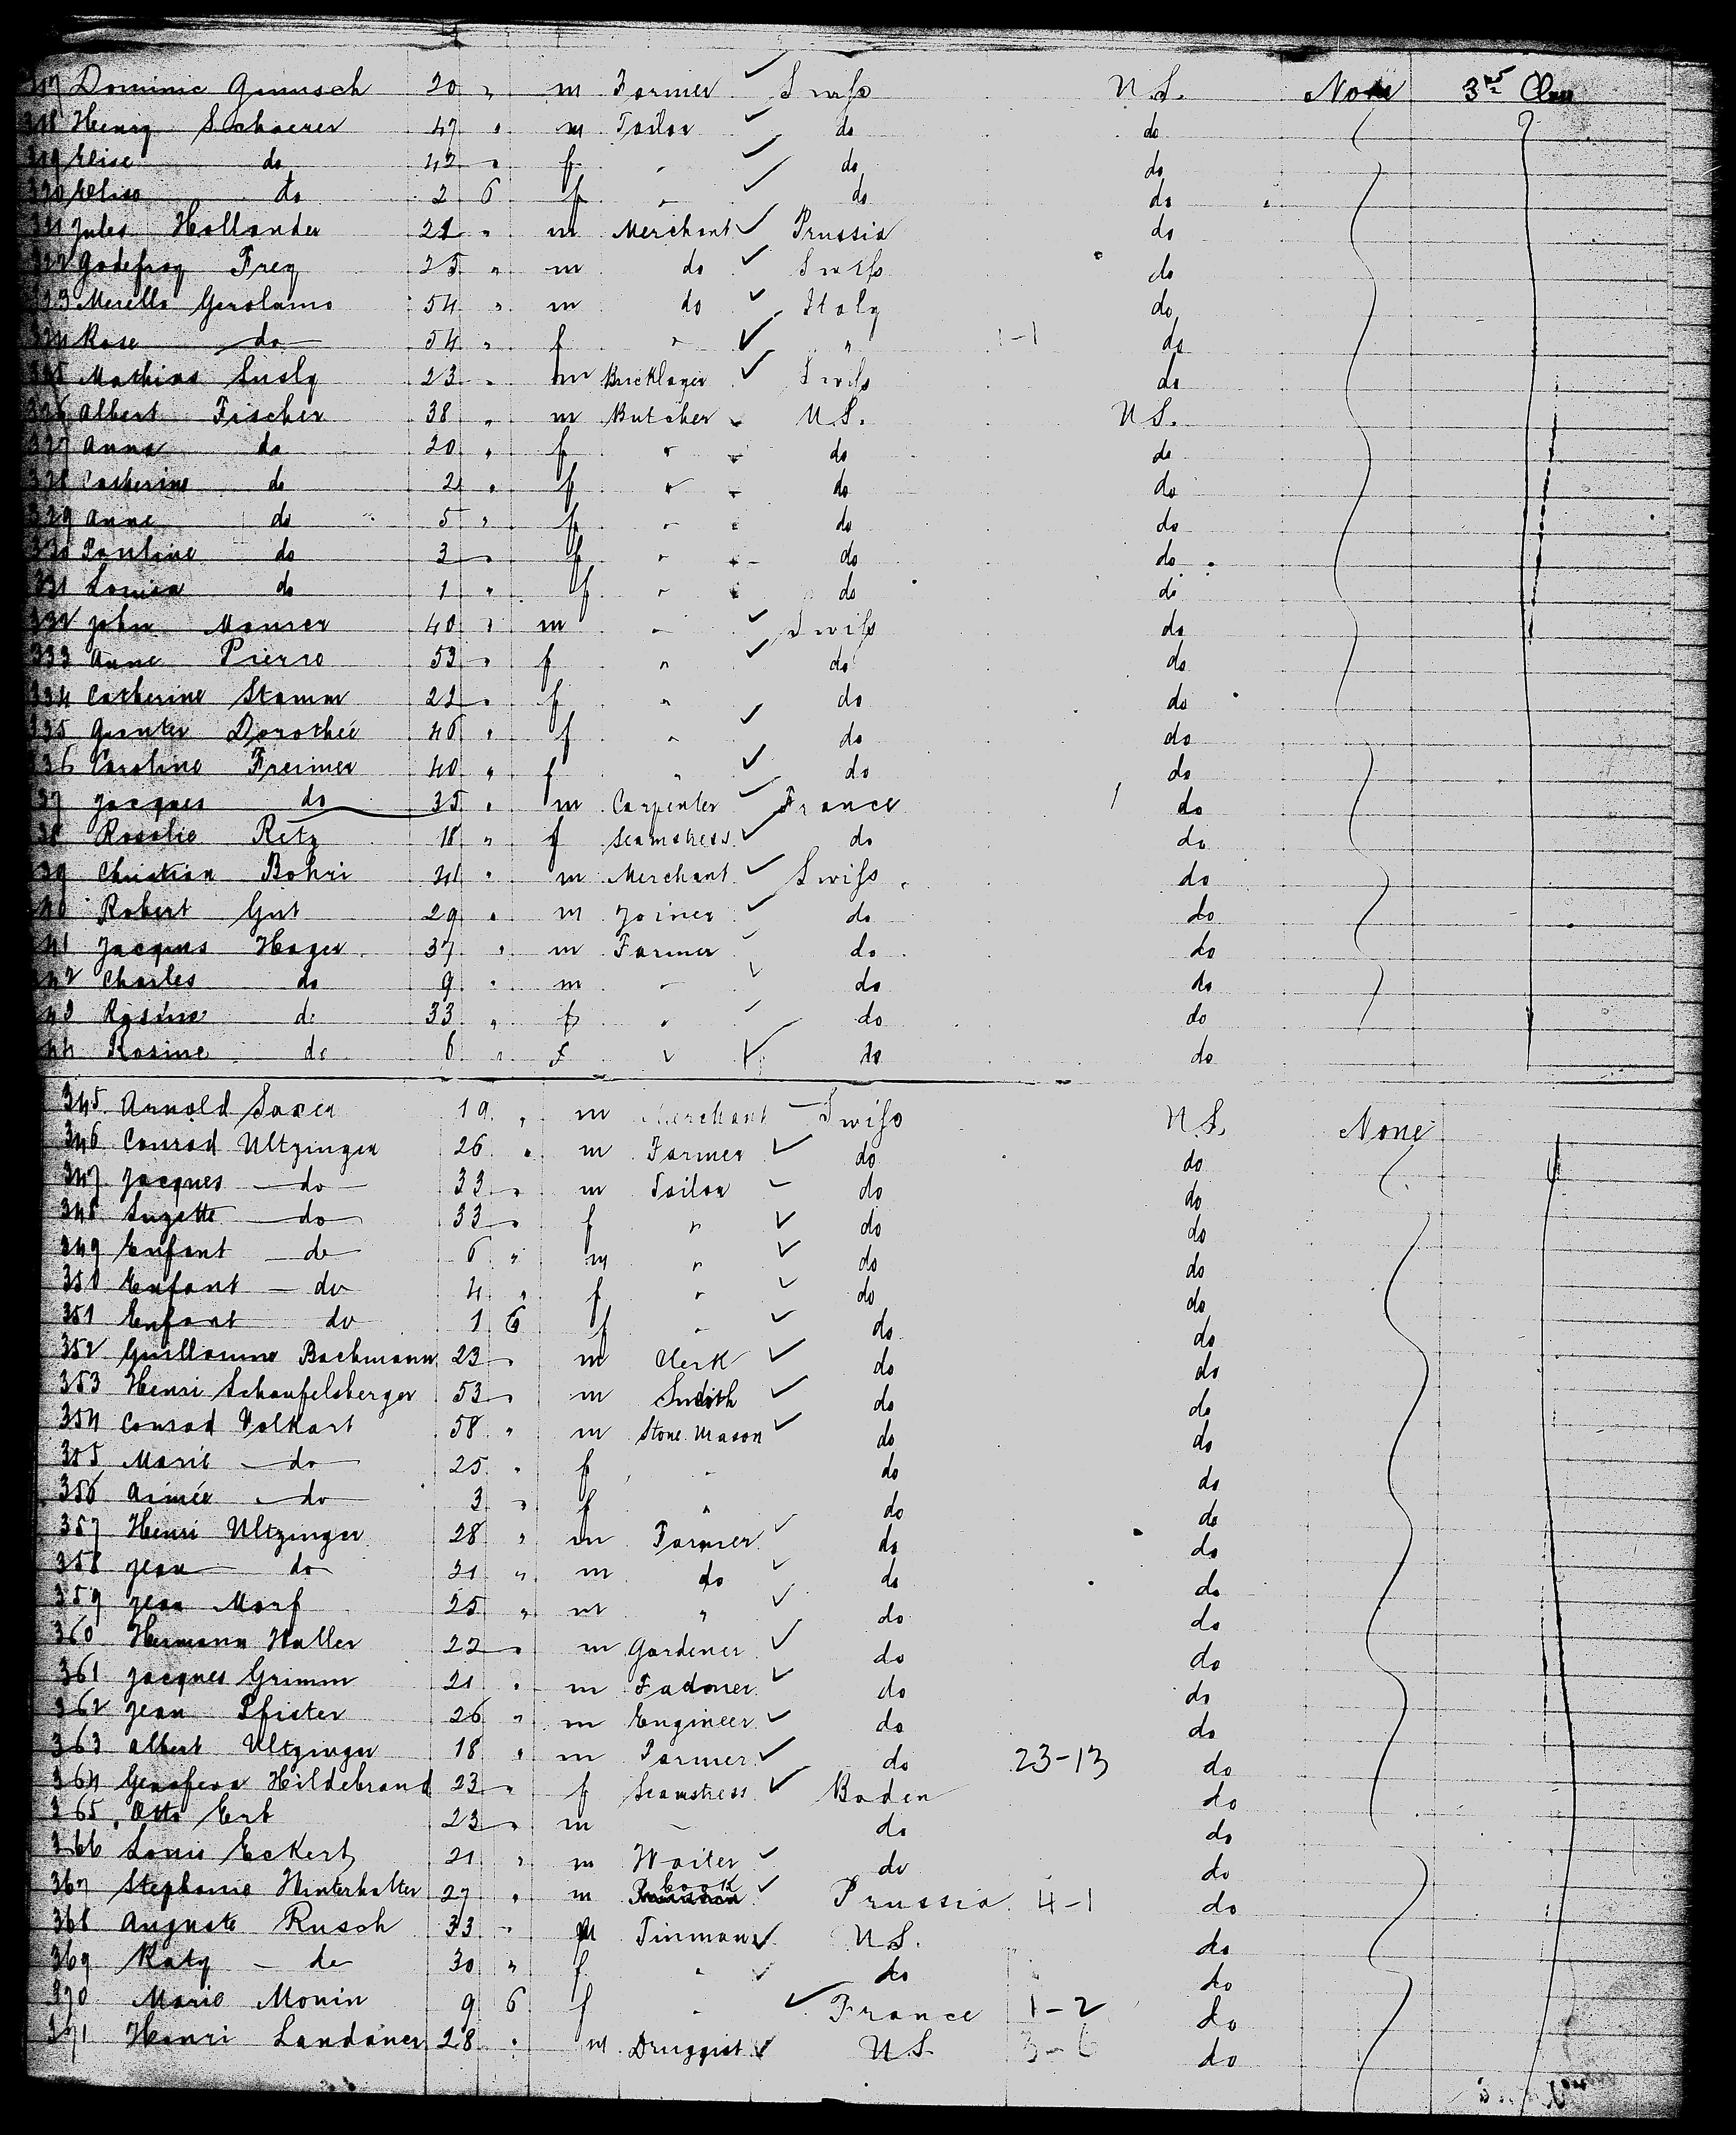 317 Dominic Gunusch 20 " m Farmer ✓ Swiss U.S. None 3rd Class
318 Henry Schaerer 47 " m Tailor ✓ do do
319 Elise do 42 " f " ✓ do do
320 Elise do 2 6 f " ✓ do do
321 Jules Hollander 21 " m Merchant ✓ Prussia do
322 Godefroy Frey 25 " m do ✓ Swiss do
323 Merello Gerolamo 54 " m do ✓ Italy do
324 Rose do 54 " f " ✓ " 1-1 do
325 Mathias Susly 23 " m Bricklayer ✓ Swiss do
326 Albert Fischer 38 " m Butcher U.S. U.S.
327 Anna do 20 " f " do do
328 Catherine do 2 " f " do do
329 Anne do 5 " f " do do
330 Pauline do 3 " f " do do
331 Louisa do 1 " f " do do
332 John Maurer 40 " m " ✓ Swiss do
333 Anne Pierro 53 " f " ✓ do do
334 Catherine Stamm 22 " f " do do
335 Gunter Dorothée 46 " f " ✓ do do
336 Caroline Freimer 40 " f " ✓ do do
337 Jacques do 35 " m Carpenter ✓ France 1 do
338 Rosalie Retz 18 " f Seamstress ✓ do do
339 Christian Bohri 24 " m Merchant ✓ Swiss do
340 Robert Gut 29 " m Joiner ✓ do do
341 Jacques Hager 37 " m Farmer ✓ do do
342 Charles do 9 " m " ✓ do do
343 Rosine do 33 " f " ✓ do do
344 Rosine do 6 " f " ✓ do do
345 Arnold Saxer 19 " m Merchant Swiss U.S. None
346 Conrad Ultzinger 26 " m Farmer ✓ do do
347 Jacques do 33 " m Tailor do do
348 Suzette do 33 " f " ✓ do do
349 Enfant do 6 " m " ✓ do do
350 Enfant do 4 " f " ✓ do do
351 Enfant do 1 6 f " ✓ do do
352 Guillaume Bachmann 23 " m Clerk ✓ do do
353 Henri Schaufelsberger 53 " m Smith ✓ do do
354 Conrad Volkart 58 " m Stone Mason ✓ do do
355 Marie do 25 " f " do do
356 Aimée do 3 " f " do do
357 Henri Ultzinger 28 " m Farmer ✓ do do
358 Jean do 21 " m do ✓ do do
359 Jean Morf 25 " m " ✓ do do
360 Hermann Haller 22 " m Gardener ✓ do do
361 Jacques Grimm 21 " m ✓ do do
362 Jean Pfister 26 " m Engineer ✓ do do
363 Albert Ultzinger 18 " m Farmer ✓ do 23-13 do
364 Genofeva Hildebrand 23 " f Seamstress ✓ Baden do
365 Otto Erb 23 " m " do do
366 Louis Eckert 21 " m Waiter ✓ do do
367 Stephanie Winterhalter 27 " m Cook ✓ Prussia 4-1 do
368 Auguste Rusch 33 " m Tinman ✓ U.S. do
369 Katy do 30 " f " ✓ do do
370 Marie Monin 9 6 f " ✓ France 1-2 do
371 Henri Landauer 28 " m Druggist ✓ U.S. 3-6 do